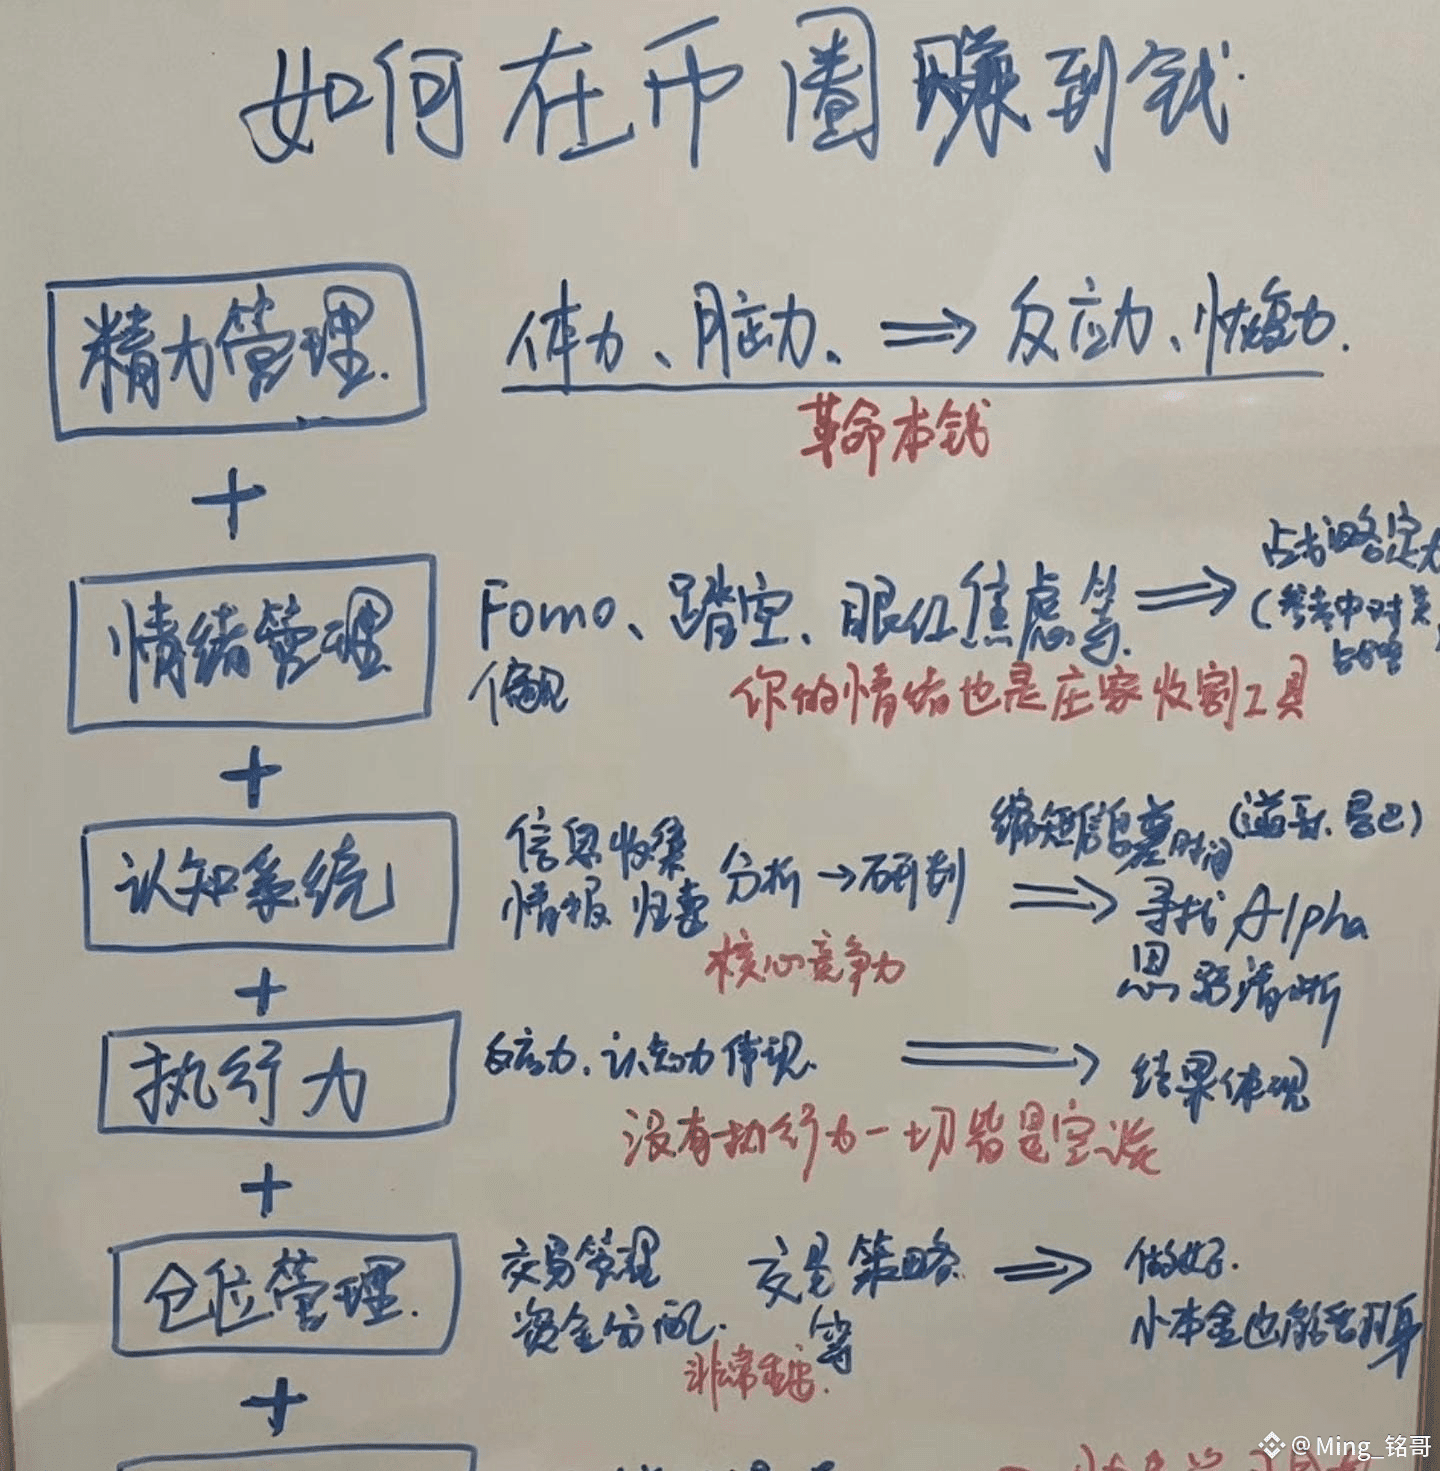 如何在币圈赚到钱.
精力管理. 体力、脑力、 ⟹ 反应力、恢复力.
革命本钱
+
情绪管理 Fomo、踏空、眼红焦虑等. ⟹
偏见
占战略定力
(参考中对美
战略
你的情绪也是庄家收割工具
+
认知系统
信息收集
情报归类
分析→研判 ⟹
缩短信息差时间
寻找Alpha
思路清晰
核心竞争力
+
执行力 反应力、认知力体现. ⟹ 结果体现
没有执行力一切皆是空谈
+
仓位管理.
交易管理
资金分配.
交易策略
等
⟹
做好.
小本金也能翻身
非常重要.
+
@Ming_铭哥